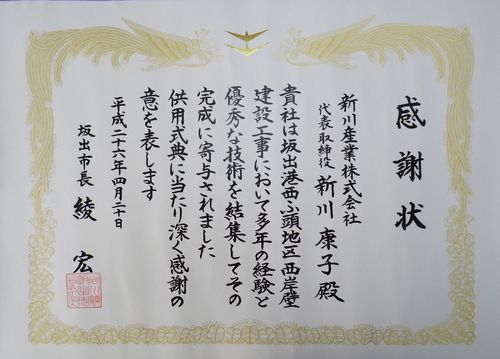 感謝状
新川産業株式会社
代表取締役 新川 康子 殿
貴社は坂出港西ふ頭地区西岸壁
建設工事において多年の経験と
優秀な技術を結集してその
完成に寄与されました
供用式典に当たり深く感謝の
意を表します
平成二十六年四月二十日
坂出市長 綾 宏